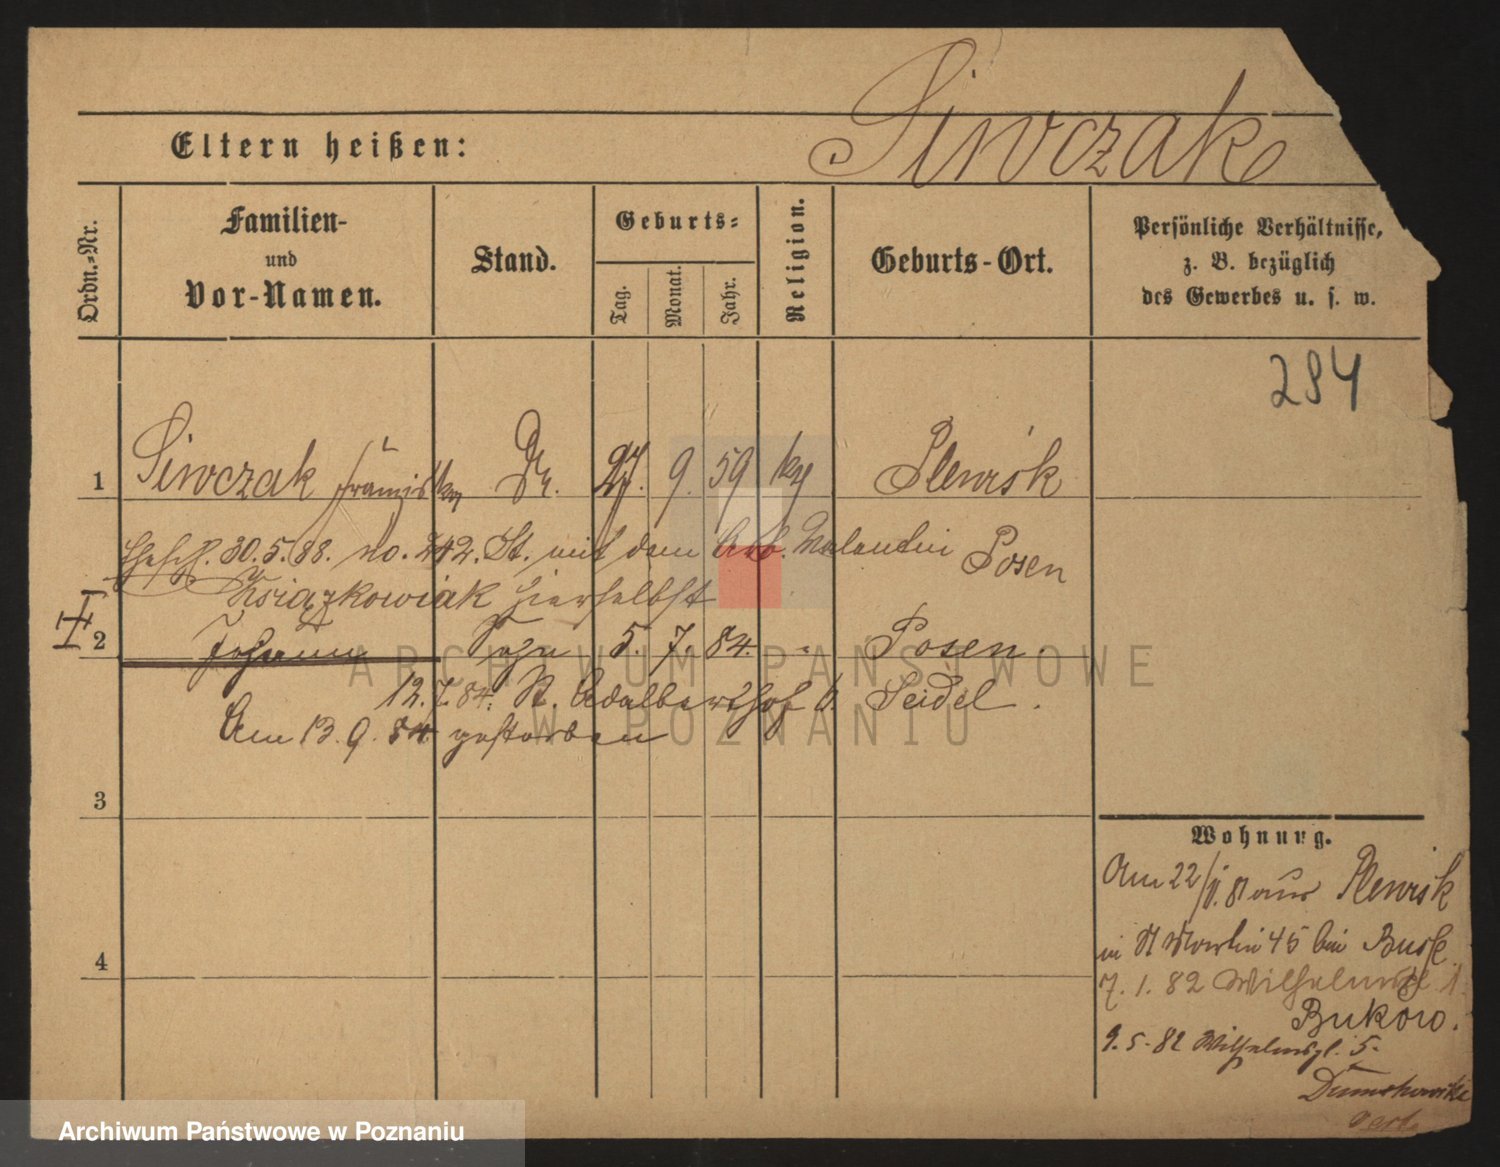 Siwczak
Eltern heißen:
Ordn.-Nr.
Familien-
und
Vor-Namen.
Stand.
Geburts-
Tag.
Monat.
Jahr.
Religion.
Geburts-Ort.
Persönliche Verhältnisse,
z. B. bezüglich
des Gewerbes u. s. w.
284
1 Siwczak Franziska 27. 9. 59 kg Plewisk
Ehesch. 30.5.88. No. 742. St. mit dem Arb. Valentin Posen
Książkowiak hierselbst
2 Johann Sohn 5. 7. 84. " Posen.
12.7.84. St. Adalberthof b. Seidel.
Am 13.9.84 gestorben
3
4
Wohnung.
Am 22/ 81 aus Plewisk
in St Martin 45 bei Busk
7.1.82 Wilhelmspl 1
Bukow.
9.5.82 Wilhelmspl. 5.
ARCHIWUM PAŃSTWOWE
W POZNANIU
Archiwum Państwowe w Poznaniu